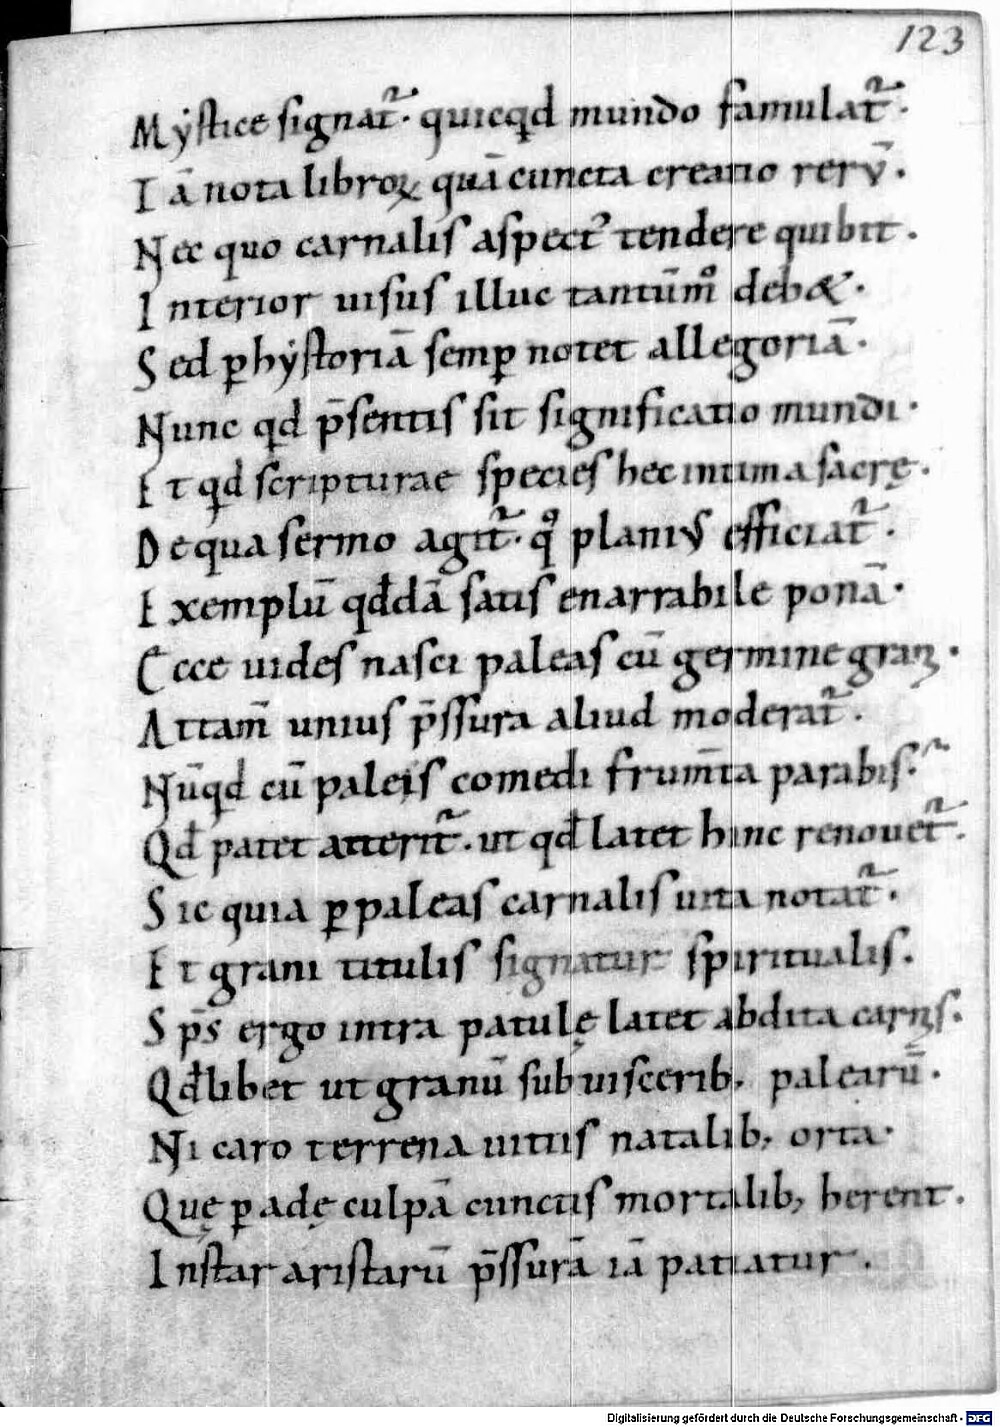 123
Mẏstice signat᷑· quicqd mundo famulat᷑·
I ā nota libroꝝ quā cuncta creatio rerū·
N ec quo carnalis aspectꝰ tendere quibit·
I nterior uisus illuc tantūmͦ deb&·
S ed ꝑ hẏstoriā semꝑ notet allegoriā·
N unc qd p̄sentis sit significatio mundi·
E t qd scripturae species hec intima sacrę·
D e qua sermo agit᷑· qͦ planius efficiat᷑·
E xemplū qd̄dā satis enarrabile ponā·
E cce uides nasci paleas cū germine grani·
A ttam̄ unius p̄ssura aliud moderat᷑·
N ūqd cū paleis comedi frum̄ta parabis·
Qd̄ patet atterit᷑· ut qd̄ latet hinc renouet᷑·
S ic quia ꝑ paleas carnalis uita notat᷑·
E t grani titulis signatur spiritualis·
S p̄s ergo intra patulę latet abdita carnis·
Qd̄libet ut granū sub uiscerib; palearū·
N i caro terrena uitiis natalib; orta·
Quę ꝑ adę culpā cunctis mortalib; herent·
I nstar aristarū p̄ssurā iā patiatur·
Digitalisierung gefördert durch die Deutsche Forschungsgemeinschaft - DFG